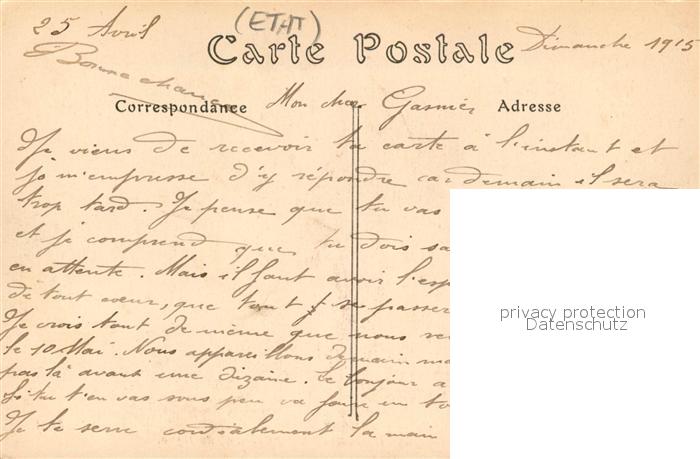 (ETAT)
25 Avril
Carte Postale
Dimanche 1915
Bonne chance
Correspondance
Mon cher Gasnier
Adresse
Je viens de recevoir ta carte à l'instant et
je m'empresse d'y répondre car demain il sera
trop tard. Je pense que tu vas
et je comprend que tu dois
en attente. Mais il faut avoir
de tout cœur, que tout se passer
Je crois tout de même que nous
le 10 Mai. Nous appareillons demain
pas là avant une dizaine. le bonjour a
Si tu t'en vas sous peu va faire un
Je te serre cordialement la main
privacy protection
Datenschutz